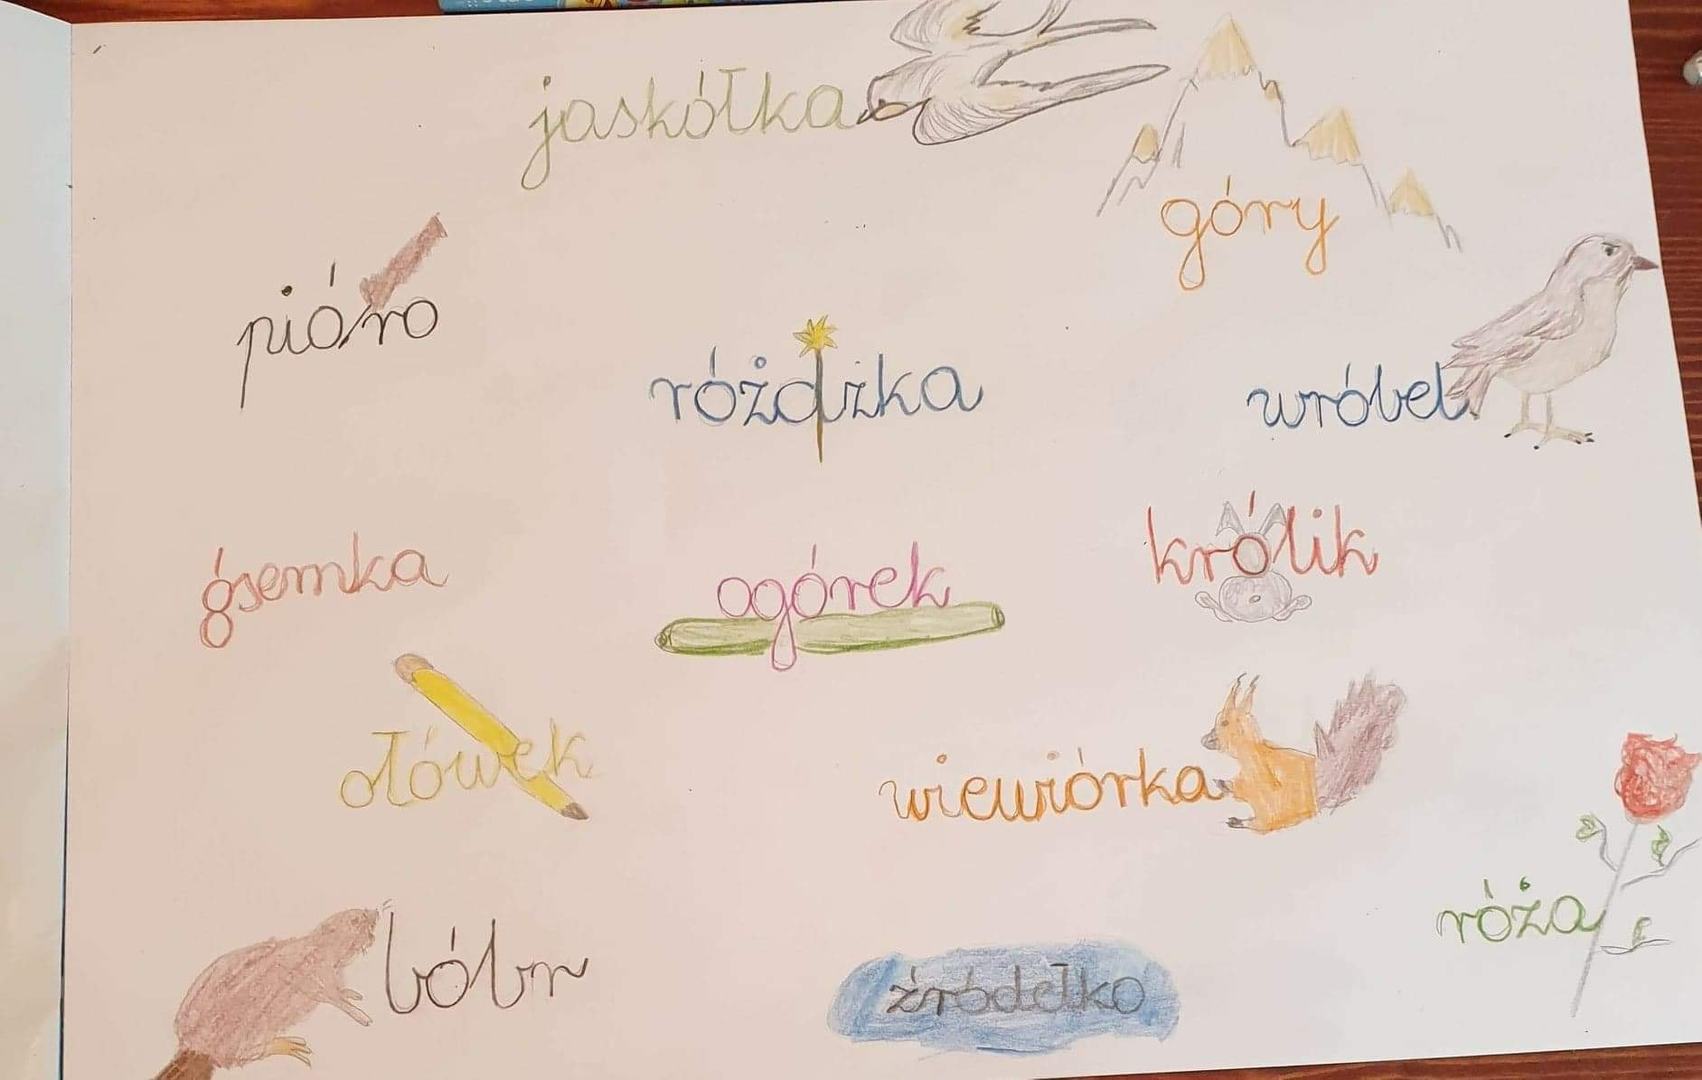 jaskółka
góry
pióro
różdżka
wróbel
ósemka
ogórek
królik
ołówek
wiewiórka
róża
bóbr
źródełko